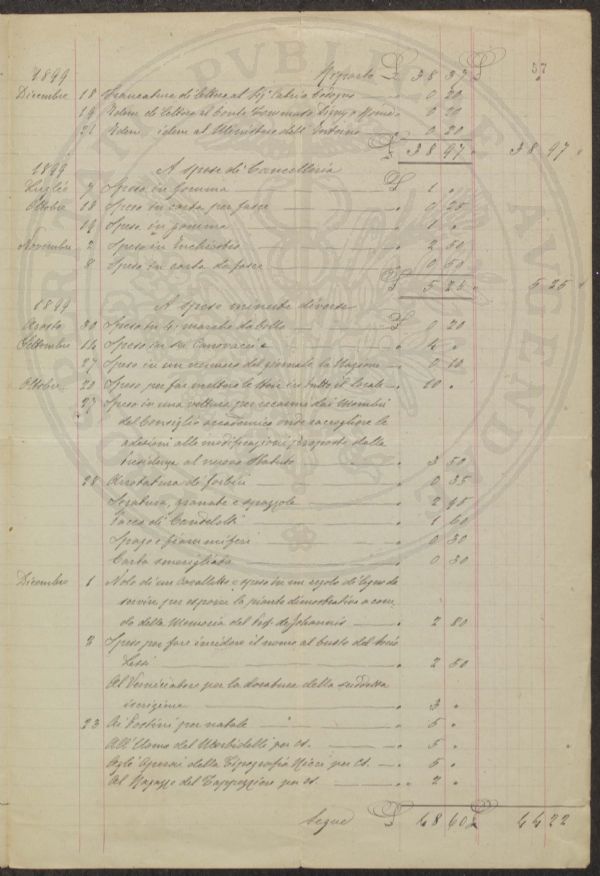 57
1899 Riporto £ 38 37
Dicembre 18 Francatura di lettera al Sig.
19 Idem di lettera al Conte Tommaso 0 20
21 Idem idem al Ministero dell'Interno 0 20
£ 38 97 38 97
1899 A spese di Cancelleria
Luglio 7 Spese in gomma £ 1 "
Ottobre 18 Spese in carta per fasce 0 25
19 Spese in gomma 1 "
Novembre 2 Spese in Inchiostro 2 50
8 Spese in carta da fasce 0 50
£ 5 25 5 25
1899 A spese minute diverse
Agosto 30 Spese in 4 marche da bollo £ 0 20
Settembre 14 Spese in sei Canovacci 4 "
27 Spese in un numero del giornale la Nazione 0 10
Ottobre 20 Spese per far mettere le stoie in tutto il locale 10 "
27 Spese in una vettura per recarmi dai Membri
del Consiglio accademico onde raccogliere le
adesioni alle modificazioni proposte dalla
Presidenza al nuovo Statuto 3 50
28 Arrotatura di forbici 0 35
Segatura, granate e spazzole 2 95
Pacco di Candelotti 1 60
Spago e fiammiferi 0 30
Carta smerigliata 0 30
Dicembre 1 Nolo di un Cavalletto e spese in un regolo di legno da
servire per esporre la pianta dimostrativa a corre-
do della Memoria del Prof. de Johannis 2 80
2 Spese per fare incidere il nome al busto del
2 50
Al Verniciatore per la doratura della suddetta
iscrizione 3 "
23 Ai Postini per natale 5 "
All'Uomo del Morbidelli per id. 5 "
Agli Operai della Tipografia Ricci per id. 5 "
Al Ragazzo del Tappezziere per id. 2 "
Segue £ 48 60 £ 44 22